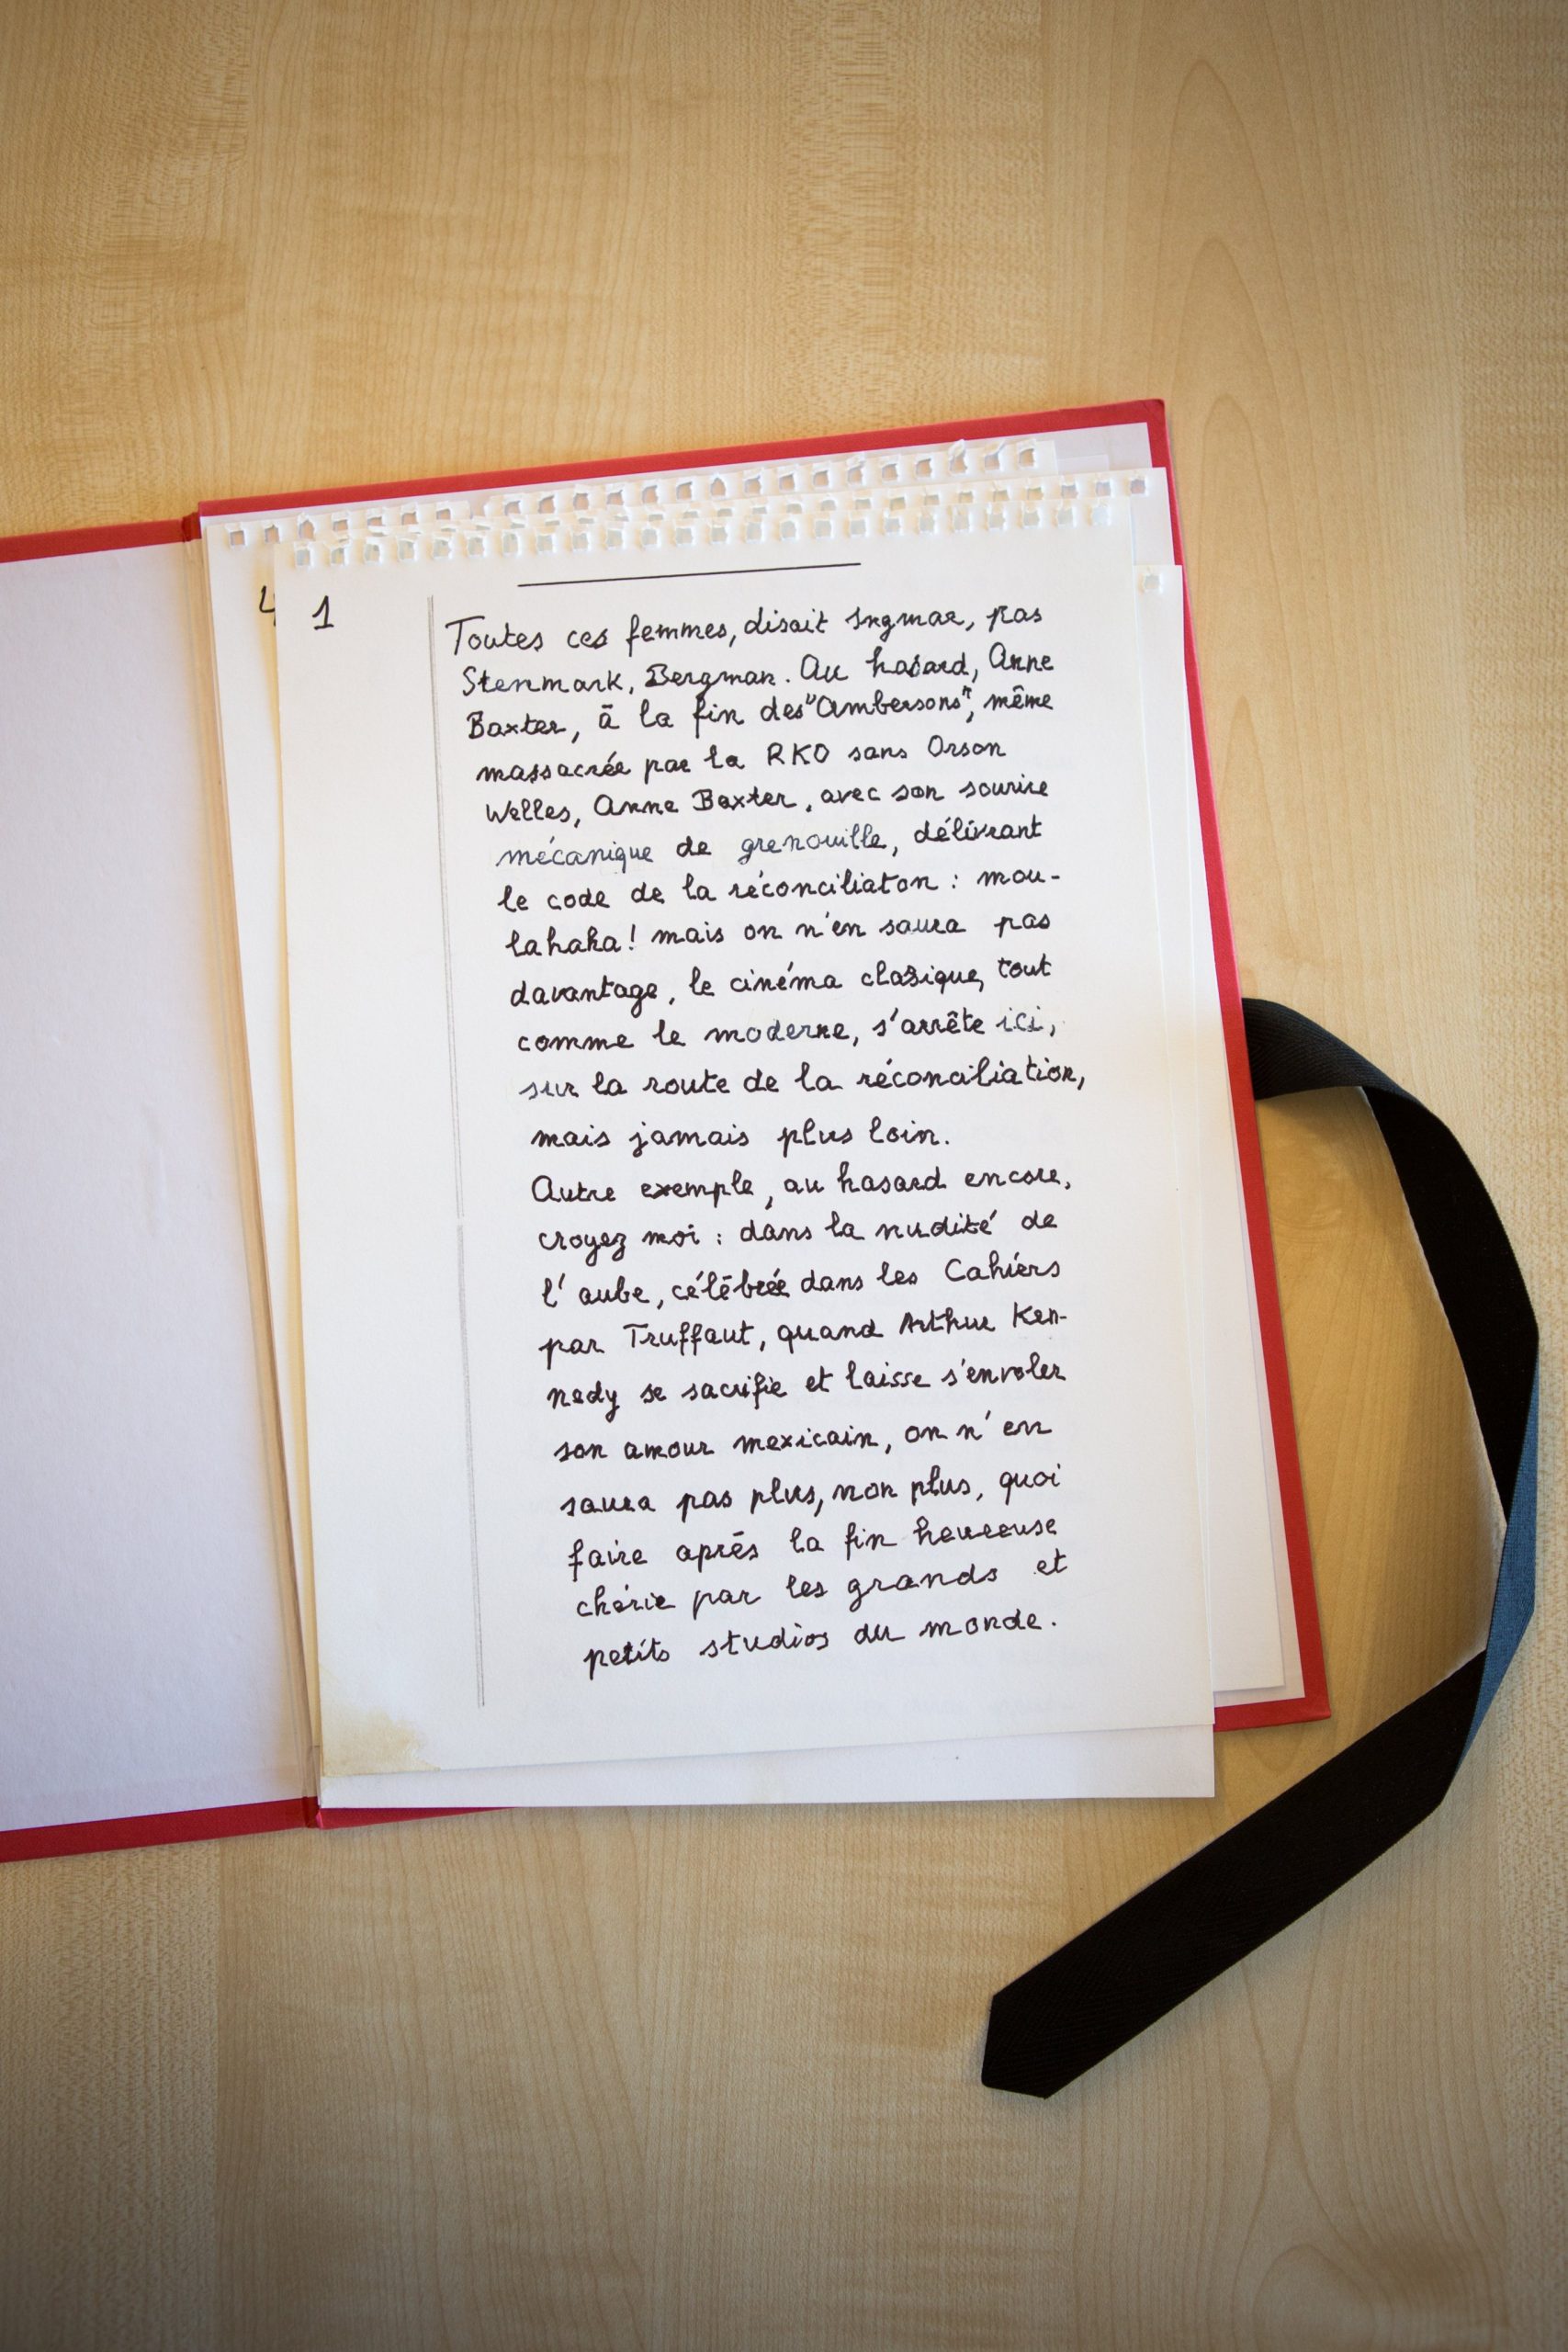 4
1
Toutes ces femmes, disait Ingmar, pas
Stenmark, Bergman. Au hasard, Anne
Baxter, à la fin des "Ambersons", même
massacrée par la RKO sans Orson
Welles, Anne Baxter, avec son sourire
mécanique de grenouille, délivrant
le code de la réconciliaton : mou-
lahaha! mais on n'en saura pas
davantage, le cinéma classique, tout
comme le moderne, s'arrête ici,
sur la route de la réconciliation,
mais jamais plus loin.
Autre exemple, au hasard encore,
croyez moi : dans la nudité de
l'aube, célébrée dans les Cahiers
par Truffaut, quand Arthur Ken-
nedy se sacrifie et laisse s'envoler
son amour mexicain, on n'en
saura pas plus, non plus, quoi
faire après la fin heureuse
chérie par les grands et
petits studios du monde.